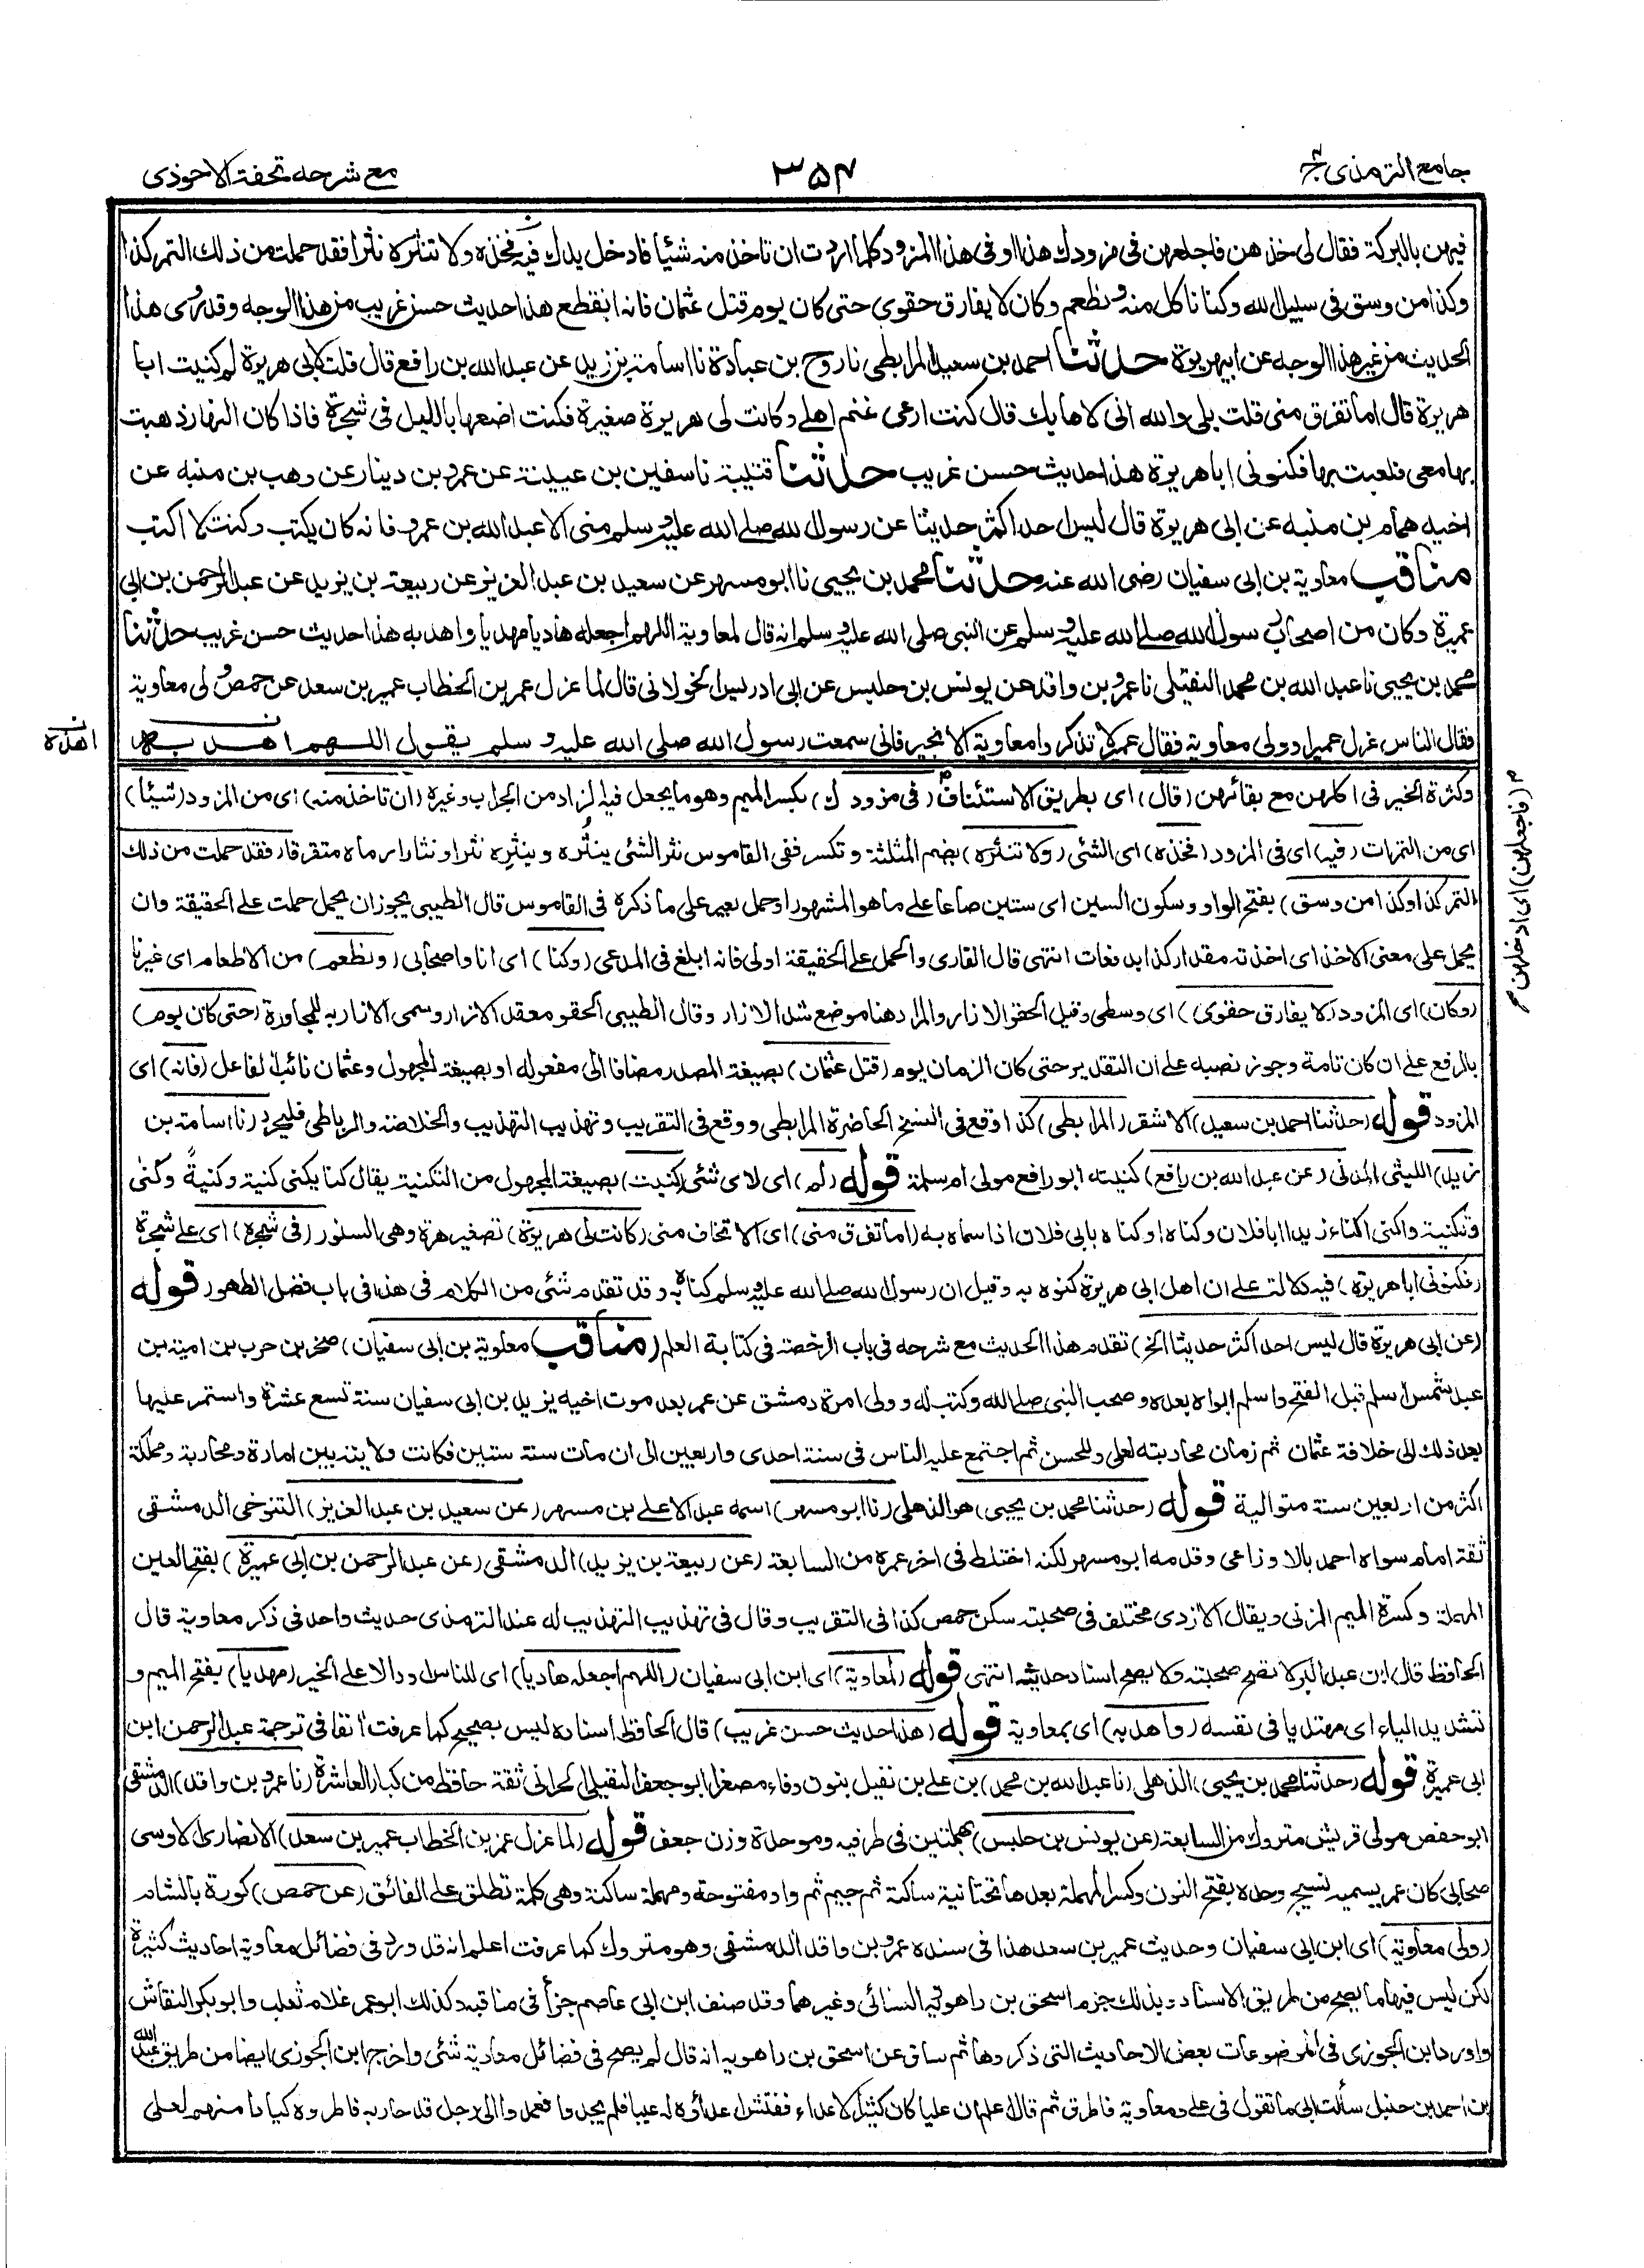 جامع الترمذى ج۴
۳۵۴
مع شرحه تحفة الاحوذى
فيهن بالبركة فقال لى خذهن فاجعلهن فى مزودك هذا او فى هذا المزود كلما اردت ان تاخذ منه شيأ فادخل يدك فيه فخذه ولا تنثره نثرا فقد حملت من ذلك التمر كذا
وكذا من وسق فى سبيل الله وكنا ناكل منه ونطعم وكان لا يفارق حقوى حتى كان يوم قتل عثمان فانه انقطع هذا حديث حسن غريب من هذا الوجه وقد روى هذا
الحديث من غير هذا الوجه عن ابى هريرة حدثنا احمد بن سعيد المرابطى نا روح بن عبادة نا اسامة بن زيد عن عبد الله بن رافع قال قلت لابى هريرة لم كنيت ابا
هريرة قال اما تفرق منى قلت بلى والله انى لاهابك قال كنت ارعى غنم اهلى وكانت لى هريرة صغيرة فكنت اضعها بالليل فى شجرة فاذا كان النهار ذهبت
بها معى فلعبت بها فكنونى ابا هريرة هذا حديث حسن غريب حدثنا قتيبة نا سفين بن عيينة عن عمرو بن دينار عن وهب بن منبه عن
اخيه همام بن منبه عن ابى هريرة قال ليس احد اكثر حديثا عن رسول الله صلى الله عليه وسلم منى الا عبد الله بن عمرو فانه كان يكتب وكنت لا اكتب
مناقب معاوية بن ابى سفيان رضى الله عنه حدثنا محمد بن يحيى نا ابو مسهر عن سعيد بن عبد العزيز عن ربيعة بن يزيد عن عبد الرحمن بن ابى
عميرة وكان من اصحاب رسول الله صلى الله عليه وسلم عن النبى صلى الله عليه وسلم انه قال لمعاوية اللهم اجعله هاديا مهديا واهد به هذا حديث حسن غريب حدثنا
محمد بن يحيى نا عبد الله بن محمد النفيلى نا عمرو بن واقد عن يونس بن حلبس عن ابى ادريس الخولانى قال لما عزل عمر بن الخطاب عمير بن سعد عن حمص ولى معاوية
فقال الناس عزل عميرا وولى معاوية فقال عمير لا تذكروا معاوية الا بخير فانى سمعت رسول الله صلى الله عليه وسلم يقول اللهم اهد به
اهده
وكثرة الخير فى اكلهن مع بقائهن (قال) اى بطريق الاستئناف (فى مزودك) بكسر الميم وهو ما يجعل فيه الزاد من الجراب وغيره (ان تاخذ منه) اى من المزود (شيئا)
(فاجعلهن) اى ادخلهن
اى من التمرات (فيه) اى فى المزود (فخذه) اى الشئ (ولا تنثره) بضم المثلثة وتكسر ففى القاموس نثر الشئ ينثُره وينثِره نثرا ونثارا رماه متفرقا (فقد حملت من ذلك
التمر كذا وكذا من وسق) بفتح الواو وسكون السين اى ستين صاعا على ما هو المشهور او حمل بعير على ما ذكره فى القاموس قال الطيبى يجوز ان يحمل حملت على الحقيقة وان
يحمل على معنى الاخذ اى اخذته مقدار كذا بدفعات انتهى قال القارى والحمل على الحقيقة اولى فانه ابلغ فى المدعى (وكنا) اى انا واصحابى (ونطعم) من الاطعام اى غيرنا
(وكان) اى المزود (لا يفارق حقوى) اى وسطى وقيل الحقو الازار والمراد هنا موضع شد الازار وقال الطيبى الحقو معقد الازار وسمى الازار به للمجاورة (حتى كان يوم)
بالرفع على ان كان تامة وجوز نصبه على ان التقدير حتى كان الزمان يوم (قتل عثمان) بصيغة المصدر مضافا الى مفعوله او بصيغة المجهول وعثمان نائب الفاعل (فانه) اى
المزود قوله (حدثنا احمد بن سعيد) الاشقر (المرابطى) كذا وقع فى النسخ الحاضرة المرابطى ووقع فى التقريب وتهذيب التهذيب والخلاصة والرباطى فليحرر (نا اسامة بن
زيد) الليثى المدنى (عن عبد الله بن رافع) كنيته ابو رافع مولى ام سلمة قوله (لم) اى لاى شئ (كنيت) بصيغة المجهول من التكنية يقال كنا يكنى كنية وكنيةً وكنى
وتكنية واكنى اكناء زيدا ابا فلان وكناه اوكناه بابى فلان اذا سماه به (اما تفرق منى) اى الا تخاف منى (كانت لى هريرة) تصغير هرة وهى السنور (فى شجرة) اى على شجرة
(فكنونى ابا هريرة) فيه دلالة على ان اهل ابى هريرة كنوه به وقيل ان رسول الله صلى الله عليه وسلم كناه به وقد تقدم شئ من الكلام فى هذا فى باب فضل الطهور قوله
(عن ابى هريرة قال ليس احد اكثر حديثا الخ) تقدم هذا الحديث مع شرحه فى باب الرخصة فى كتابة العلم (مناقب معاوية بن ابى سفيان) صخر بن حرب بن امية بن
عبد شمس اسلم قبل الفتح واسلم ابواه بعده وصحب النبى صلى الله وكتب له وولى امرة دمشق عن عمر بعد موت اخيه يزيد بن ابى سفيان سنة تسع عشرة واستمر عليها
بعد ذلك الى خلافة عثمان ثم زمان محاربته لعلى وللحسن ثم اجتمع عليه الناس فى سنة احدى واربعين الى ان مات سنة ستين فكانت ولايته بين امارة ومحاربة ومملكة
اكثر من اربعين سنة متوالية قوله (حدثنا محمد بن يحيى) هو الذهلى (نا ابو مسهر) اسمه عبد الاعلى بن مسهر (عن سعيد بن عبد العزيز) التنوخى الدمشقى
ثقة امام سواه احمد بالاوزاعى وقدمه ابو مسهر لكنه اختلط فى اخر عمره من السابعة (عن ربيعة بن يزيد) الدمشقى (عن عبد الرحمن بن ابى عميرة) بفتح العين
المهملة وكسرة الميم المزنى ويقال الازدى مختلف فى صحبته سكن حمص كذا فى التقريب وقال فى تهذيب التهذيب له عند الترمذى حديث واحد فى ذكر معاوية قال
الحافظ قال ابن عبد البر لا تصح صحبته ولا يصح اسناد حديثه انتهى قوله (لمعاوية) اى ابن ابى سفيان (اللهم اجعله هاديا) اى للناس ودالا على الخير (مهديا) بفتح الميم و
تشديد الياء اى مهتديا فى نفسه (واهد به) اى بمعاوية قوله (هذا حديث حسن غريب) قال الحافظ اسناده ليس بصحيح كما عرفت انفا فى ترجمة عبد الرحمن ابن
ابى عميرة قوله (حدثنا محمد بن يحيى) الذهلى (نا عبد الله بن محمد) بن على بن نفيل بنون وفاء مصغرا ابو جعفر النفيلى الحرانى ثقة حافظ من كبار العاشرة (نا عمرو بن واقد) الدمشقى
ابو حفص مولى قريش متروك من السابعة (عن يونس بن حلبس) بمهملتين فى طرفيه وموحدة وزن جعفر قوله (لما عزل عمر بن الخطاب عمير بن سعد) الانصارى الاوسى
صحابى كان عمر يسميه نسيج وحده بفتح النون وكسر المهملة بعدها تحتانية ساكنة ثم جيم ثم واو مفتوحة ومهملة ساكنة وهى كلمة تطلق على الفائق (عن حمص) كورة بالشام
(ولى معاوية) اى ابن ابى سفيان وحديث عمير بن سعد هذا فى سنده عمرو بن واقد الدمشقى وهو متروك كما عرفت اعلم انه قد ورد فى فضائل معاوية احاديث كثيرة
لكن ليس فيها ما يصح من طريق الاسناد وبذلك جزم اسحق بن راهويه النسائى وغيرهما وقد صنف ابن ابى عاصم جزأ فى مناقبه وكذلك ابو عمر غلام ثعلب وابو بكر النقاش
واورد ابن الجوزى فى الموضوعات بعض الاحاديث التى ذكروها ثم ساق عن اسحق بن راهويه انه قال لم يصح فى فضائل معاوية شئ واخرج ابن الجوزى ايضا من طريق عبد الله
بن احمد بن حنبل سألت ابى ما تقول فى على ومعاوية فاطرق ثم قال اعلم ان عليا كان كثير الاعداء ففتش اعداؤه له عيبا فلم يجدوا فعمدوا الى رجل قد حاربه فاطروه كيادا منهم لعلى